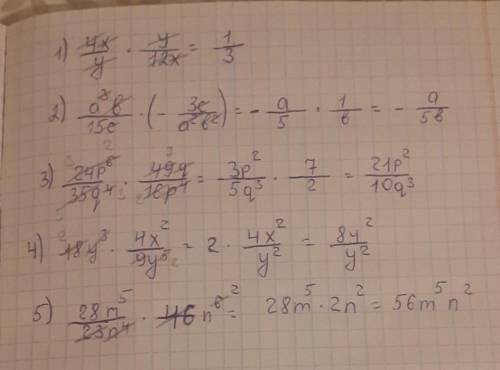 1) 4x/y · y/12x = 1/3
2) a³b/15c · (- 3c/a²b²) = - a/5 · 1/b = - a/5b
3) 24p⁶/35q⁴ · 49q/16p⁴ = 3p²/5q³ · 7/2 = 21p²/10q³
4) 18y³ · 4x²/9y⁵ = 2 · 4x²/y² = 8y²/y²
5) 28m⁵/23n⁴ · 46n⁶ = 28m⁵ · 2n² = 56m⁵n²